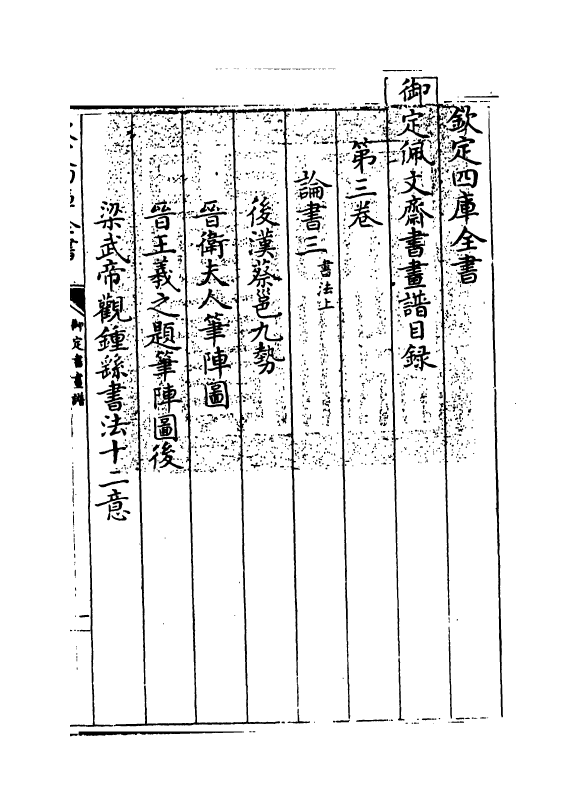 欽定四庫全書
御定佩文齋書畫譜目録
第三卷
論書三書法上
後漢蔡邕九勢
晉衛夫人筆陣圖
晉王羲之題筆陣圖後
梁武帝觀鍾繇書法十二意
御定書畫譜